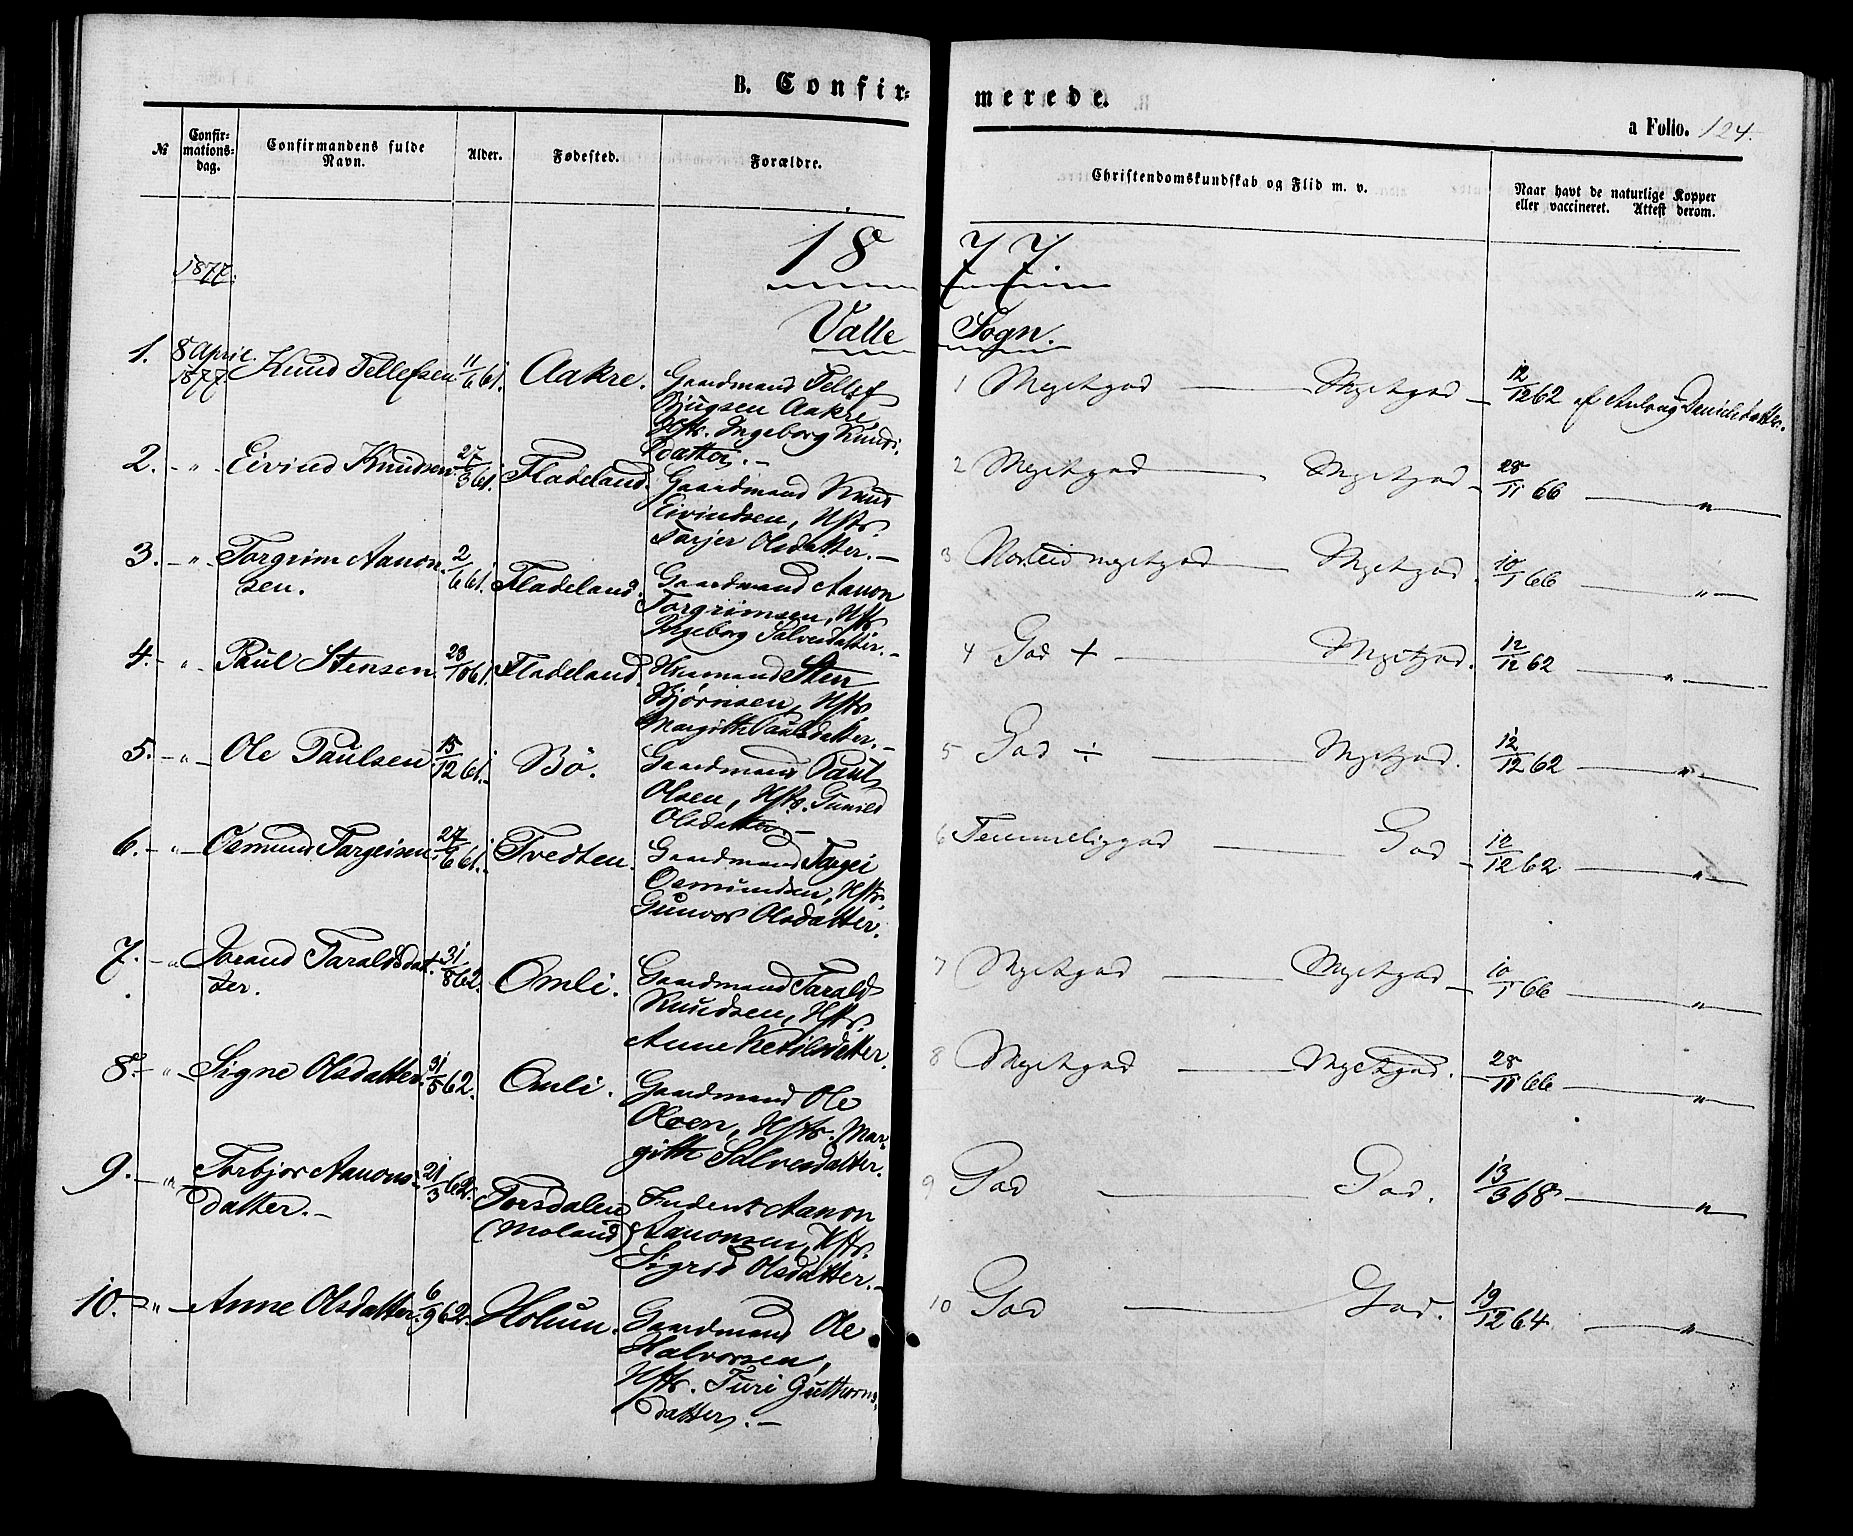 B. Confir-
merede.
a Folio. 124.
№
Confir-
mations-
dag.
Confirmandens fulde
Navn.
Alder.
Fødested.
Forældre.
Christendomskundskab og Flid m. v.
Naar havt de naturlige Kopper
eller vaccineret. Attest derom.
1877.
1877.
Valle Sogn.
1. 8 April 1877 Knud Tellefsen 11/6 61. Aakre. Gaardmand Tellef
Bjugsen Aakre
Hstr. Ingeborg Knuds
datter. –
1 Megetgod — Megetgod – 12/12 62 af Anlaug Danielsdatter.
2. – " – Eivind Knudsen 27/3 61. Fladeland. Gaardmand Knud
Eivindsen, Hstr.
Tarjer Olsdatter. –
2 Megetgod — Megetgod – 28/11 66 — "
3. – " – Torgrim Aanon-
sen. 2/6 61. Fladeland. Gaardmand Aanon
Torgrimsen, Hstr
Ingeborg Salvesdatter. –
3 Næsten megetgod — Megetgod. 10/1 66 — " –
4. – " – Paul Stensen 23/10 61. Fladeland. Huusmand Sten
Bjørnsen, Hstr
Margith Paulsdatter. –
4 God + — Megetgod. 12/12 62 — "
5. – " – Ole Paulsen 15/12 61. Bö. Gaardmand Paul
Olsen, Hstr. Gunild
Olsdatter. –
5 God ÷ — Megetgod. 12/12 62 — "
6. – " – Osmund Targeisen 27/6 61. Tvedten. Gaardmand Targei
Osmundsen, Hstr.
Gunvor Olsdatter.
6 Temmeliggod — God – 12/12 62 — "
7. – " Jorand Taraldsdat-
ter. 31/8 62. Omli. Gaardmand Tarald
Knudsen, Hstr.
Anne Ketilsdatter.
7 Megetgod — Megetgod – 10/1 66 — "
8. – " – Signe Olsdatter 31/5 62. Omli. Gaardmand Ole
Olsen, Hstr. Mar-
gith Salvesdatter.
8 Megetgod — Megetgod. – 28/11 66 — "
9. – " Torbjor Aanons-
datter. – 21/3 62. Torsdalen
(Moland) Inderst Aanon
Aanonsen, Hstr.
Sigrid Olsdatter. –
9 God — God. 13/3 68 — "
10. – " – Anne Olsdatter. 6/9 62. Holum. Gaardmand Ole
Halvorsen,
Hstr. Turi Guthorms
datter. –
10 God — God. 19/12 64 — "